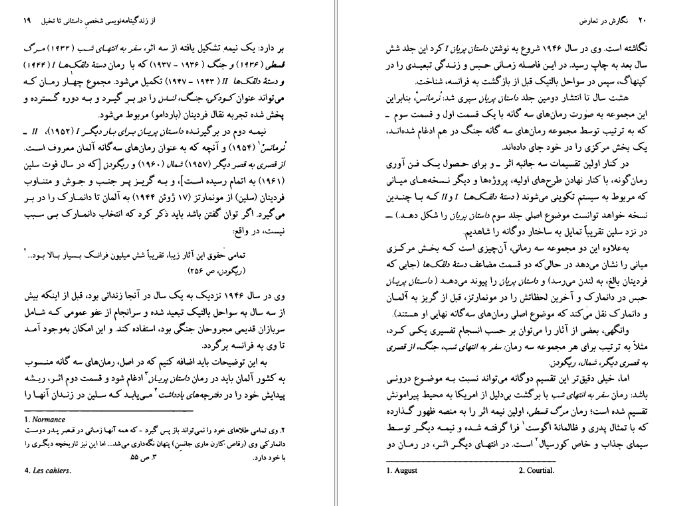 از زندگینامه‌نویسی شخصی داستانی تا تخیل ۱۹
بر دارد: یک نیمه تشکیل یافته از سه اثر، سفر به انتهای شب (۱۹۳۲) مرگ
قسطی (۱۹۳۶) و جنگ (۱۹۳۶ - ۱۹۳۷) که با رمان دستهٔ دلقک‌ها I (۱۹۴۴)
و دستهٔ دلقک‌ها II (۱۹۴۳ - ۱۹۴۷) تکمیل می‌شود. مجموع چهار رمان که
می‌تواند عنوان کودکی، جنگ، لندن را در بر گیرد و به دوره گسترده و
پخش شده تجربه نقال فردینان (باردامو) مربوط می‌شود.
نیمه دوم در برگیرنده داستان پریان برای بار دیگر I (۱۹۵۲)، II ـ
نُرمانس۱ (۱۹۵۴) و آنچه که به عنوان رمان‌های سه‌گانه آلمان معروف است.
از قصری به قصر دیگر (۱۹۵۷) شمال (۱۹۶۰) و ریگودن [که در سال فوت سلین
(۱۹۶۱) به اتمام رسیده است]، و به گریز پر جنب و جوش و متناوب
فردینان (سلین) از مونمارتز (۱۷ ژوئن ۱۹۴۴) به آلمان تا دانمارک را در بر
می‌گیرد. اگر توان گفتن باشد باید ذکر کرد که انتخاب دانمارک بی سبب
نیست، در واقع:
تمامی حقوق این آثار زیبا، تقریباً شش میلیون فرانک بسیار بالا بود...۲
(ریگودن، ص ۲۵۶)
وی در سال ۱۹۴۶ نزدیک به یک سال در آنجا زندانی بود، قبل از اینکه بیش
از سه سال به سواحل بالتیک تبعید شده و سرانجام از عفو عمومی که شامل
سربازان قدیمی مجروحان جنگی بود، استفاده کند و این امکان به‌وجود آمد
تا وی به فرانسه برگردد.
به این توضیحات باید اضافه کنیم که در اصل، رمان‌های سه‌گانه منسوب
به کشور آلمان باید در رمان داستان پریان۳ ادغام شود و قسمت دوم اثر، ریشه
پیدایش خود را در دفترچه‌های یادداشت۴ می‌یابد که سلین در زندان آنها را
1. Normance
۲. وی تمامی طلاهای خود را نمی‌تواند باز پس گیرد - که همه آنها زمانی در قصیر پدر دوست
دانمارکی وی (رقاص کارن ماری جانسن) پنهان نگه‌داری می‌شد... اما این نیز تاریخچه دیگری را
با خود دارد. ۳. ص ۵۵
4. Les cahiers.
۲۰ نگارش در تعارض
نگاشته است. وی در سال ۱۹۴۶ شروع به نوشتن داستان پریان I کرد این جلد شش
سال بعد به چاپ رسید. در این فاصله زمانی حبس و زندگی تبعیدی را در
کپنهاگ، سپس در سواحل بالتیک قبل از بازگشت به فرانسه، شناخت.
هشت سال تا انتشار دومین جلد داستان پریان سپری شد: نُرمانس، بنابراین
این مجموعه به صورت رمان‌های سه گانه با یک قسمت اول و قسمت سوم ـ
که به ترتیب توسط مجموعه رمان‌های سه گانه جنگ در هم ادغام شده‌اند،
یک بخش مرکزی را در خود جای داده‌اند.
در کنار اولین تقسیمات سه جانبه اثر ـ و برای حصول یک فن آوری
رمان‌گونه، با کنار نهادن طرح‌های اولیه، پروژه‌ها و دیگر نسخه‌های میانی
که مربوط به سیستم تکوینی می‌شوند (دستهٔ دلقک‌ها I و II که با چندین
نسخه خواهد توانست موضوع اصلی جلد سوم داستان پریان را شکل دهد.) ـ
در نزد سلین تقریباً تمایل به ساختار دوگانه را شاهدیم.
به‌علاوه این دو مجموعه سه رمانی، آن‌چیزی است که بخش مرکزی
میانی را نشان می‌دهد در حالی‌که دو قسمت مضاعف دستهٔ دلقک‌ها (جایی که
فردینان بالغ، به لندن می‌رسد) و داستان پریان را پیوند می‌دهد (داستان پریان
حبس در دانمارک و آخرین لحظاتش را در مونمارتز، قبل از گریز به آلمان
و دانمارک نقل می‌کند که موضوع اصلی رمان‌های سه‌گانه نهایی او هستند).
وانگهی، بعضی از آثار را می‌توان بر حسب انسجام تفسیری یکی کرد،
مثلاً به ترتیب برای هر مجموعه سه رمان: سفر به انتهای شب، جنگ، از قصری
به قصری دیگر، شمال، ریگودن.
اما، خیلی دقیق‌تر این تقسیم دوگانه می‌تواند نسبت به موضوع درونی
باشد: رمان سفر به انتهای شب با برگشت بی‌دلیل از امریکا به محیط پیرامونش
تقسیم شده است؛ رمان مرگ قسطی، اولین نیمه اثر را به منصه ظهور گذارده
که با تمثال پدری و ظالمانهٔ اگوست۱ فرا گرفته شده و نیمه دیگر توسط
سیمای جذاب و خاص کورسیال۲ است. در انتهای دیگر اثر، در رمان دو
1. August 2. Courtial.